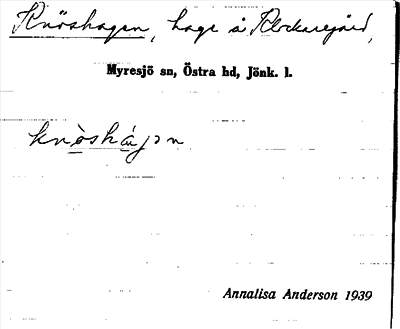 Knöshagen, hage å Klockaregård,
Myresjö sn, Östra hd, Jönk. l.
knòshágən
Annalisa Anderson 1939